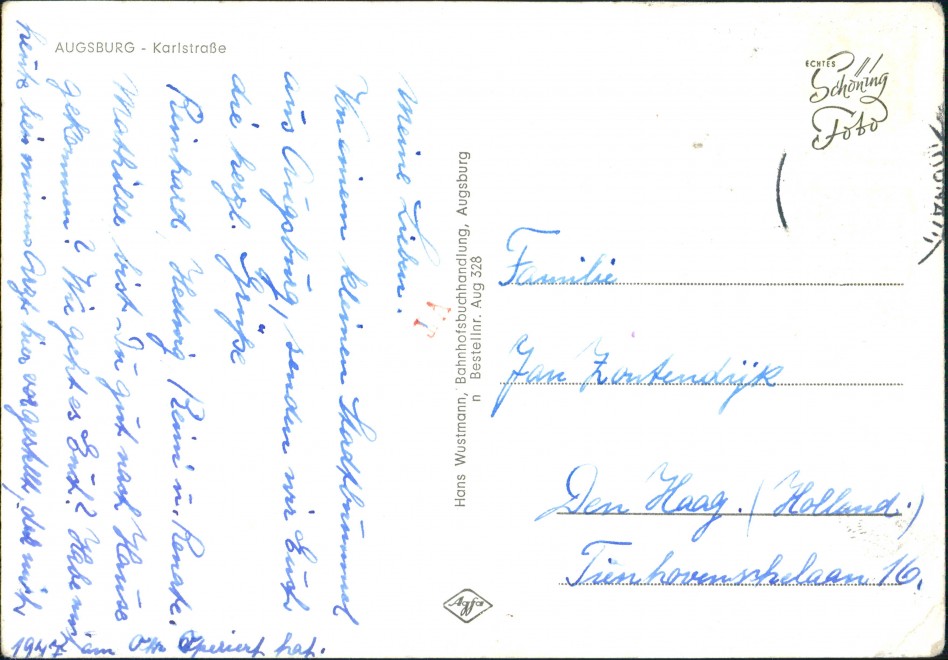 AUGSBURG - Karlstraße
Meine Lieben.
Von einem kleinen Stadtbummel
aus Augsburg, senden wir Euch
die herzl. Grüße
Reinhard Hedwig Reini u. Renate.
Mathilde bist Du gut nach Hause
gekommen? Wie geht es Euch? Habe mich
heute bei meinem Arzt hier vorgestellt, der mich
1947 am Ohr operiert hat.
Hans Wustmann, Bahnhofsbuchhandlung, Augsburg
n Bestellnr. Aug 328
ECHTES
Schöning
Foto
Familie
Jan Zontendijk
Den Haag. (Holland.)
Tienhovenschelaan 16.
Agfa